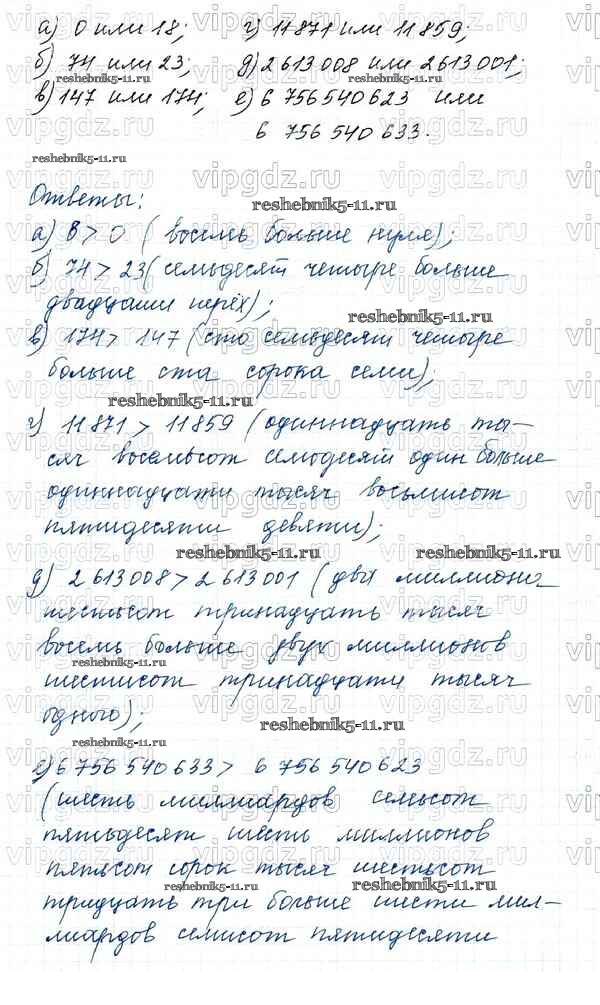 а) 0 или 18; г) 11871 или 11859;
б) 74 или 23; д) 2613008 или 2613001;
в) 147 или 174; е) 6 756 540 623 или
6 756 540 633.
reshebnik5-11.ru
Ответы:
а) 8 > 0 (восемь больше нуля);
б) 74 > 23 (семьдесят четыре больше
двадцати
в) 174 > 147 (сто семьдесят четыре
больше ста сорока семи);
г) 11871 > 11859 (одиннадцать ты-
сяч восемьсот семьдесят один больше
одиннадцати тысяч восьмисот
пятидесяти девяти);
д) 2613008 > 2613001 (два миллиона
шестьсот тринадцать тысяч
восемь больше двух миллионов
шестисот тринадцати тысяч
одного);
е) 6 756 540 633 > 6 756 540 623
(шесть миллиардов семьсот
пятьдесят шесть миллионов
пятьсот сорок тысяч шестьсот
тридцать три больше шести мил-
лиардов семисот пятидесяти
vipgdz.ru